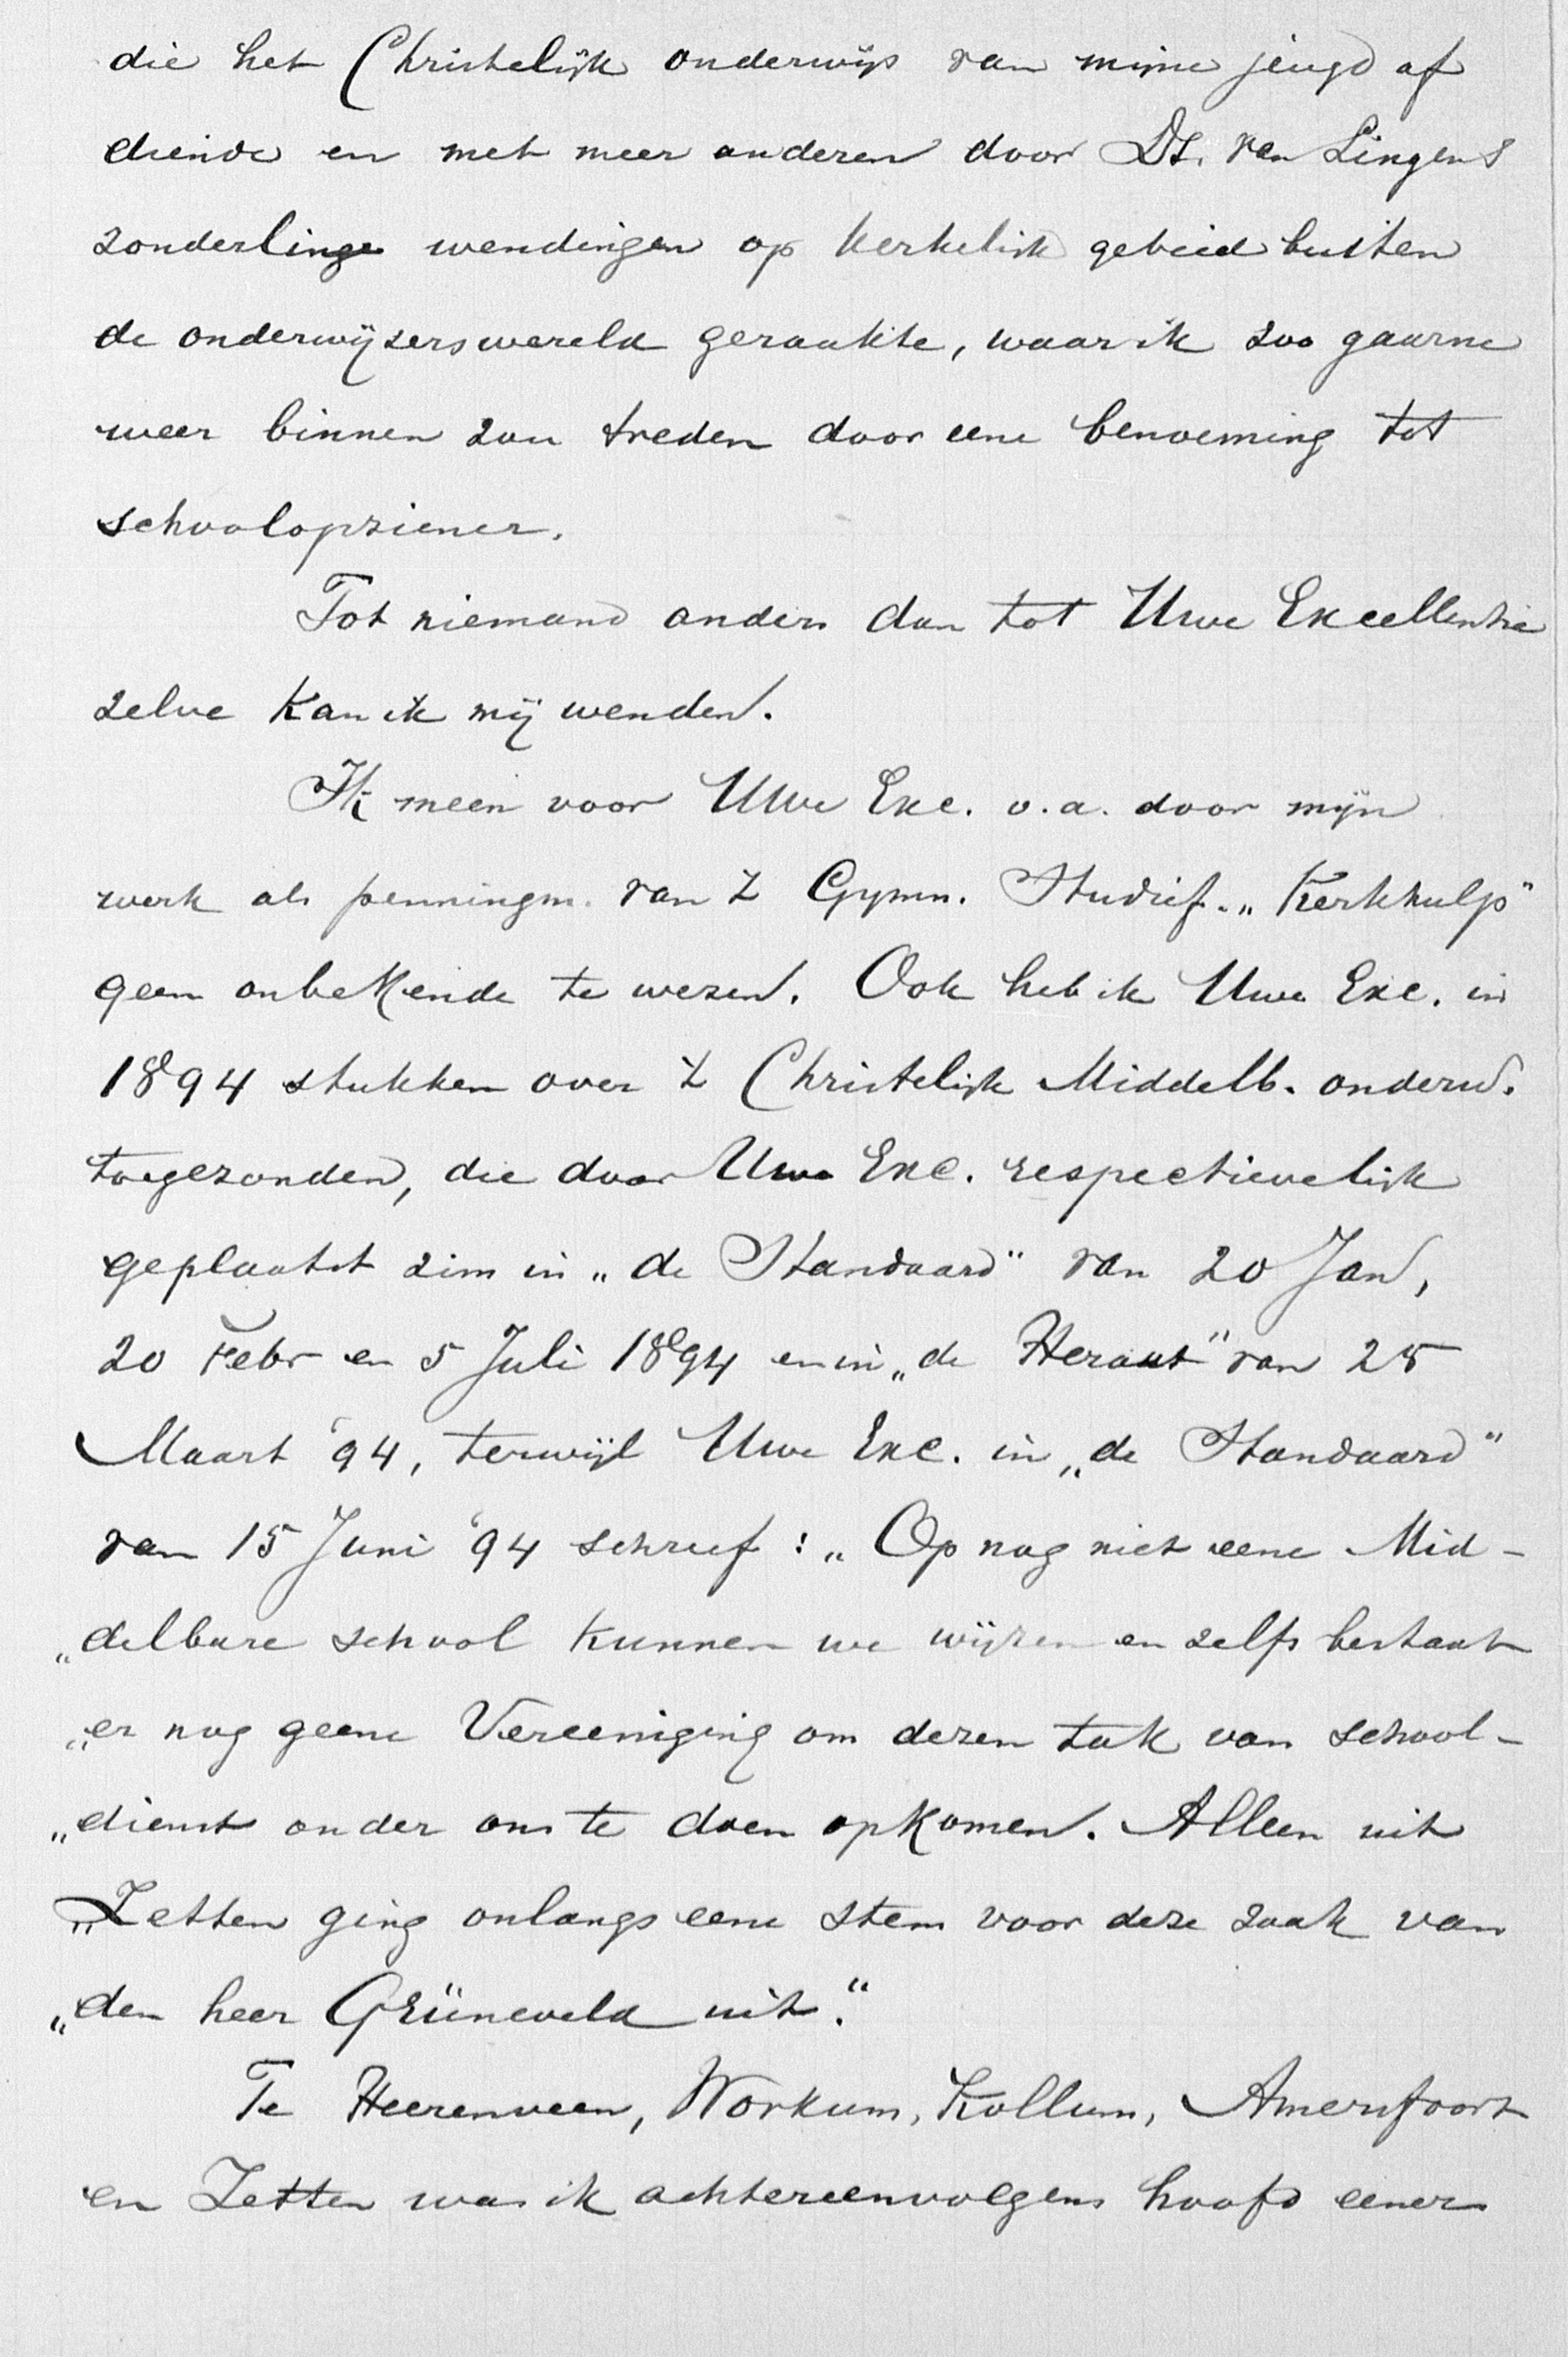 die het Christelijk onderwijs van mijne jeugd af
diende en met meer anderen door Ds. van Lingens
zonderlinge wendingen op kerkelijk gebied buiten
de onderwijzerswereld geraakte, waar ik zoo gaarne
weer binnen zou treden door eene benoeming tot
schoolopziener.
Tot niemand anders dan tot Uwe Excellentie
zelve kan ik mij wenden.
Ik meen voor Uwe Exc. o.a. door mijn
werk als penningm. van 't Gymn. Studief. „Kerkhulp"
geen onbekende te wezen. Ook heb ik Uwe Exc. in
1894 stukken over 't Christelijk Middelb. onderw.
toegezonden, die door Uwe Exc. respectievelijk
geplaatst zijn in „de Standaard" van 20 Jan,
20 Febr en 5 Juli 1894 en in „de Heraut" van 25
Maart '94, terwijl Uwe Exc. in „de Standaard"
van 15 Juni '94 schreef: „Op nog niet eene Mid-
„delbare school kunnen we wijzen en zelfs bestaat
„er nog geene Vereeniging om dezen tak van school-
„dienst onder ons te doen opkomen. Alleen uit
„Zetten ging onlangs eene stem voor deze zaak van
„den heer Grüneveld uit."
Te Heerenveen, Workum, Kollum, Amersfoort
en Zetten was ik achtereenvolgens hoofd eener